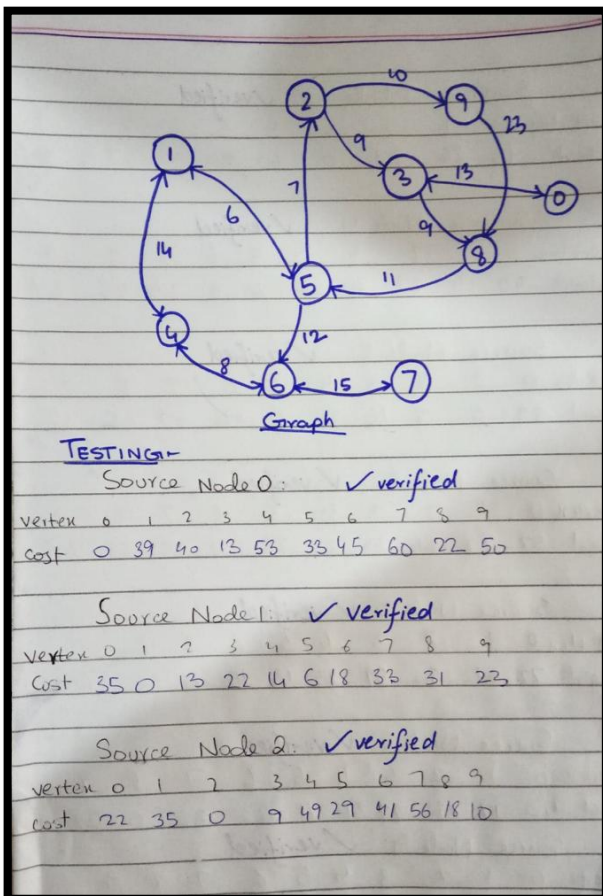 10
2
9
23
9
1
3
13
0
7
6
9
8
14
5
11
4
12
8
6
15
7
Graph
TESTING:-
Source Node 0: ✓ verified
vertex 0 1 2 3 4 5 6 7 8 9
cost 0 39 40 13 53 33 45 60 22 50
Source Node 1: ✓ verified
vertex 0 1 2 3 4 5 6 7 8 9
Cost 35 0 13 22 14 6 18 33 31 23
Source Node 2: ✓ verified
vertex 0 1 2 3 4 5 6 7 8 9
cost 22 35 0 9 49 29 41 56 18 10